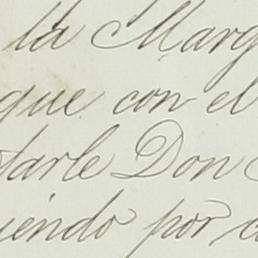 la Marg
que con el
tarle Don
iendo por c